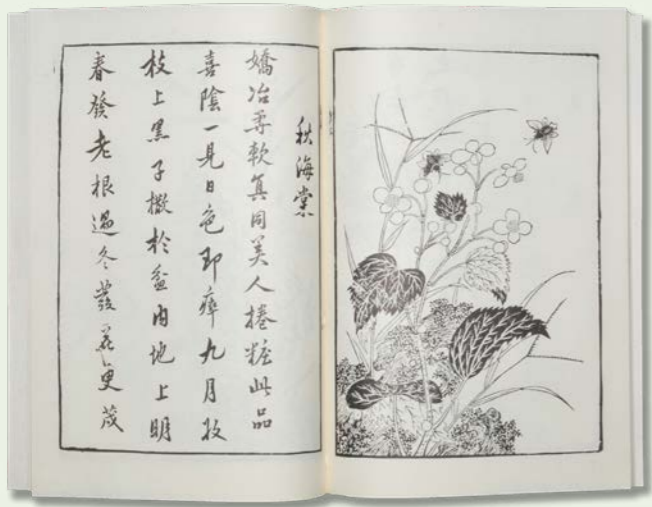 秋海棠
嬌冶柔軟真同美人捲粧此品
喜陰一見日色即瘁九月收
枝上黑子撒於盆內地上明
春發老根過冬發花更茂